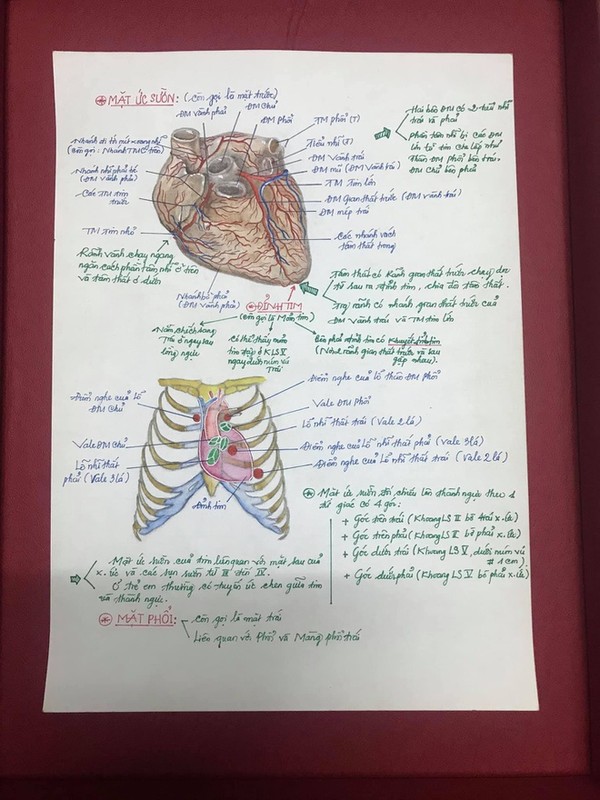 ⊛ MẶT ỨC SƯỜN: (Còn gọi là mặt trước)
ĐM vành phải
ĐM Chủ
ĐM Phổi
TM Phổi (T)
Tiểu nhĩ (T)
ĐM Vành trái
ĐM mũ (ĐM Vành trái)
TM Tim lớn
ĐM Gian thất trước (ĐM vành trái)
ĐM mép trái
Các nhánh vách
tâm thất trong
Nhánh đi tới nút xoang nhĩ
(Còn gọi: Nhánh TMC trên)
Nhánh nhĩ phải bé
(ĐM Vành phải)
Các TM tim
trước
TM Tim nhỏ
Rãnh vành chạy ngang
ngăn cách phần tâm nhĩ ở trên
và tâm thất ở dưới
Nhánh bờ phải
(ĐM Vành phải)
Hai bên ĐM có 2 tiểu nhĩ
trái và phải
Phần tâm nhĩ bị các ĐM
lớn từ tim che lấp như
Thân ĐM phổi bên trái,
ĐM Chủ bên phải
Tâm thất có Rãnh gian thất trước chạy dọc
từ sau ra đỉnh tim, chia đôi tâm thất.
Trg rãnh có nhánh gian thất trước của
ĐM Vành trái và TM tim lớn
⊛ ĐỈNH TIM
(Còn gọi là Mỏm tim)
Nằm chếch sang
Trái ở ngay sau
lồng ngực
Có thể thấy mỏm
tim đập ở KLS V
ngay dưới núm vú
Trái
Bên phải đỉnh tim có Khuyết đỉnh tim
(Nơi rãnh gian thất trước và sau
gặp nhau).
Điểm nghe của lỗ
ĐM Chủ
Vale ĐM Chủ
Lỗ nhĩ thất
phải (Vale 3 lá)
Đỉnh tim
Điểm nghe của lỗ thân ĐM Phổi
Vale ĐM Phổi
Lỗ nhĩ thất trái (Vale 2 lá)
Điểm nghe của Lỗ nhĩ thất phải (Vale 3 lá)
Điểm nghe của Lỗ nhĩ thất trái (Vale 2 lá)
⊛ Mặt ức sườn đối chiếu lên thành ngực theo 1
tứ giác có 4 góc:
+ Góc trên trái (Khoang LS II bờ trái x.ức)
+ Góc trên phải (Khoang LS II bờ phải x.ức)
+ Góc dưới trái (Khoang LS V, dưới núm vú
# 1 cm)
+ Góc dưới phải (Khoang LS V bờ phải x.ức)
Mặt ức sườn của tim liên quan với mặt sau của
x.ức và các sụn sườn từ III đến IV.
Ở trẻ em thường có tuyến ức chen giữa tim
và thành ngực.
⊛ MẶT PHỔI:
Còn gọi là mặt trái
Liên quan với Phổi và Màng phổi trái